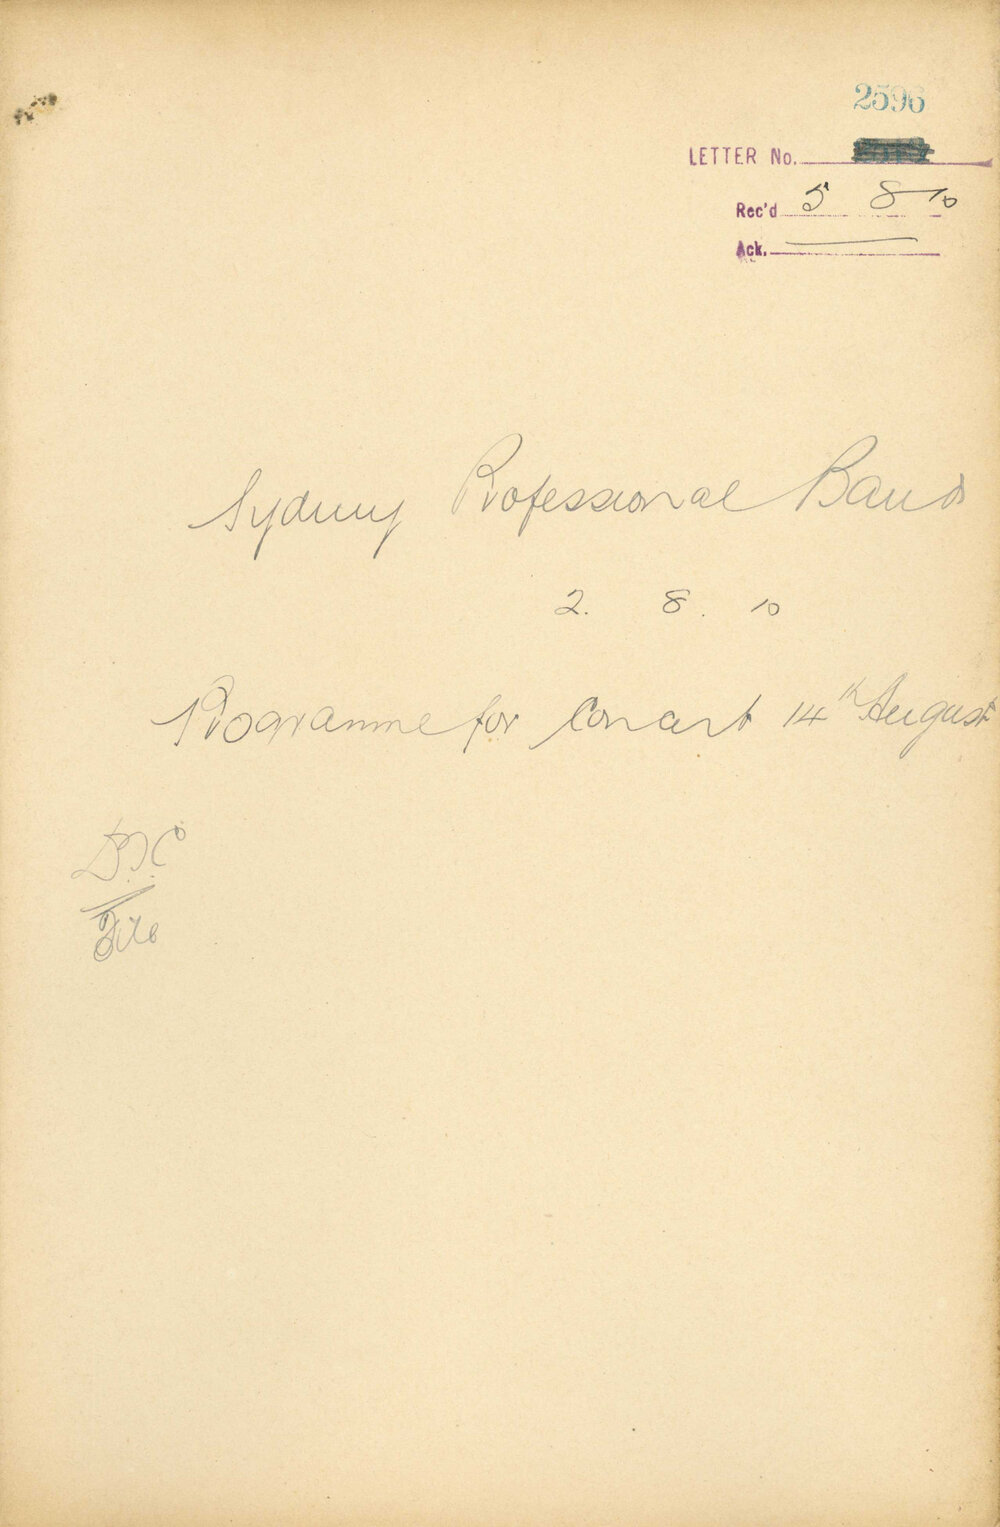 2596
LETTER No.
Rec'd 5 8 10
Ack.
Sydney Professional Band
2. 8. 10
Programme for Concert 14th August
File